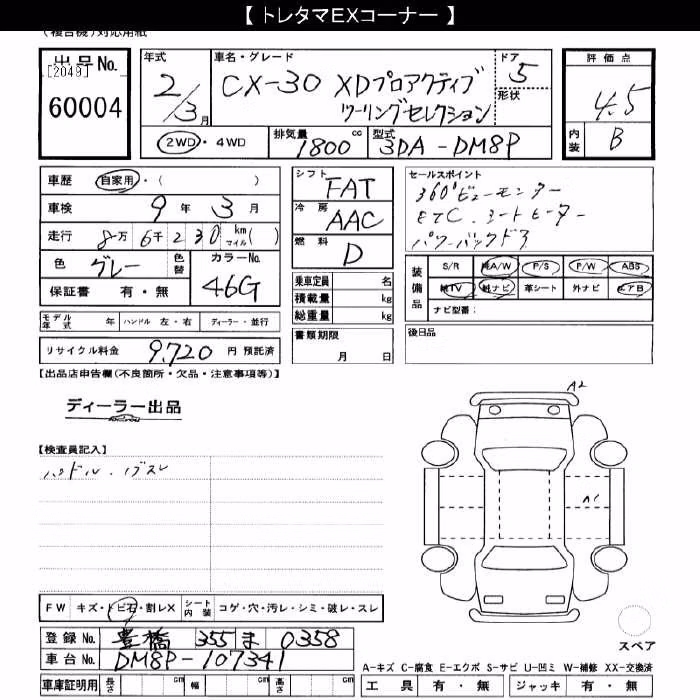 【 トレタマEXコーナー 】
(複合機)対応用紙
出品No.
[2049]
60004
年式
2/3月
車名・グレード
CX-30 XDプロアクティブ
ツーリングセレクション
ドア
5
形状
評価点
4.5
内装
B
2WD・4WD
排気量
1800 cc
型式
3DA-DM8P
車歴 自家用・( )
車検 9年 3月
走行 8万6千230 km マイル( )
色 グレー 色替
カラーNo.
46G
保証書 有・無
シフト
FAT
冷房
AAC
燃料
D
乗車定員 名
積載量 kg
総重量 kg
書類期限
月 日
セールスポイント
360°ビューモニター
ETC.シートヒーター
パワーバックドア
装備品
S/R 純A/W P/S P/W ABS
純TV 純ナビ 革シート 外ナビ エアB
ナビ型番:
後日品
モデル年式 年 ハンドル 左・右 ディーラー・並行
リサイクル料金 9,720 円 預託済
【出品店申告欄(不良箇所・欠品・注意事項等)】
ディーラー出品
【検査員記入】
ハンドル.
A2
A1
FW キズ・トビ石・割レX シート内装 コゲ・穴・汚レ・シミ・破レ・スレ
登録No. 豊橋 355 ま 0358
車台No. DM8P-107341
車庫証明用 長さ cm 幅 cm 高さ cm
スペア
A-キズ C-腐食 E-エクボ S-サビ U-凹ミ W-補修 XX-交換済
工具 有・無 ジャッキ 有・無